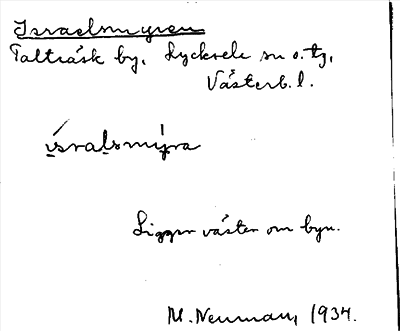 Israelsmyren
Talträsk by, Lycksele sn o. tg,
Västerb. l.
ísralsmýra
Ligger väster om byn.
M. Neuman, 1934.